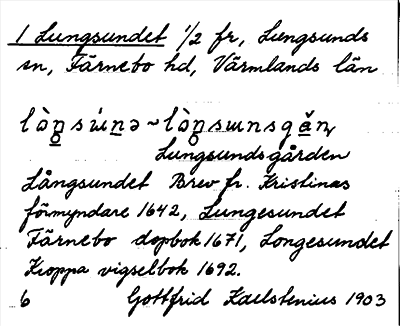 1 Lungsundet 1/2 fr, Lungsunds
sn, Färnebo hd, Värmlands län
lòŋsùnə ~ lòŋsunsgǎṇ
Lungsundsgården
Långsundet Brev fr. Kristinas
förmyndare 1642, Lungesundet
Färnebo dopbok 1671, Longesundet
Kroppa vigselbok 1692.
6 Gottfrid Kallstenius 1903